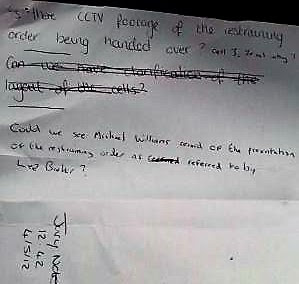 Is there CCTV footage of the restraining
order being handed over? cell 3, If not why?
Can we have clarification of the
layout of the cells?
Could we see Michael Williams record of the presentation
of the restraining order as referred to by
Butler?
Jury Note
12:42
4/5/12